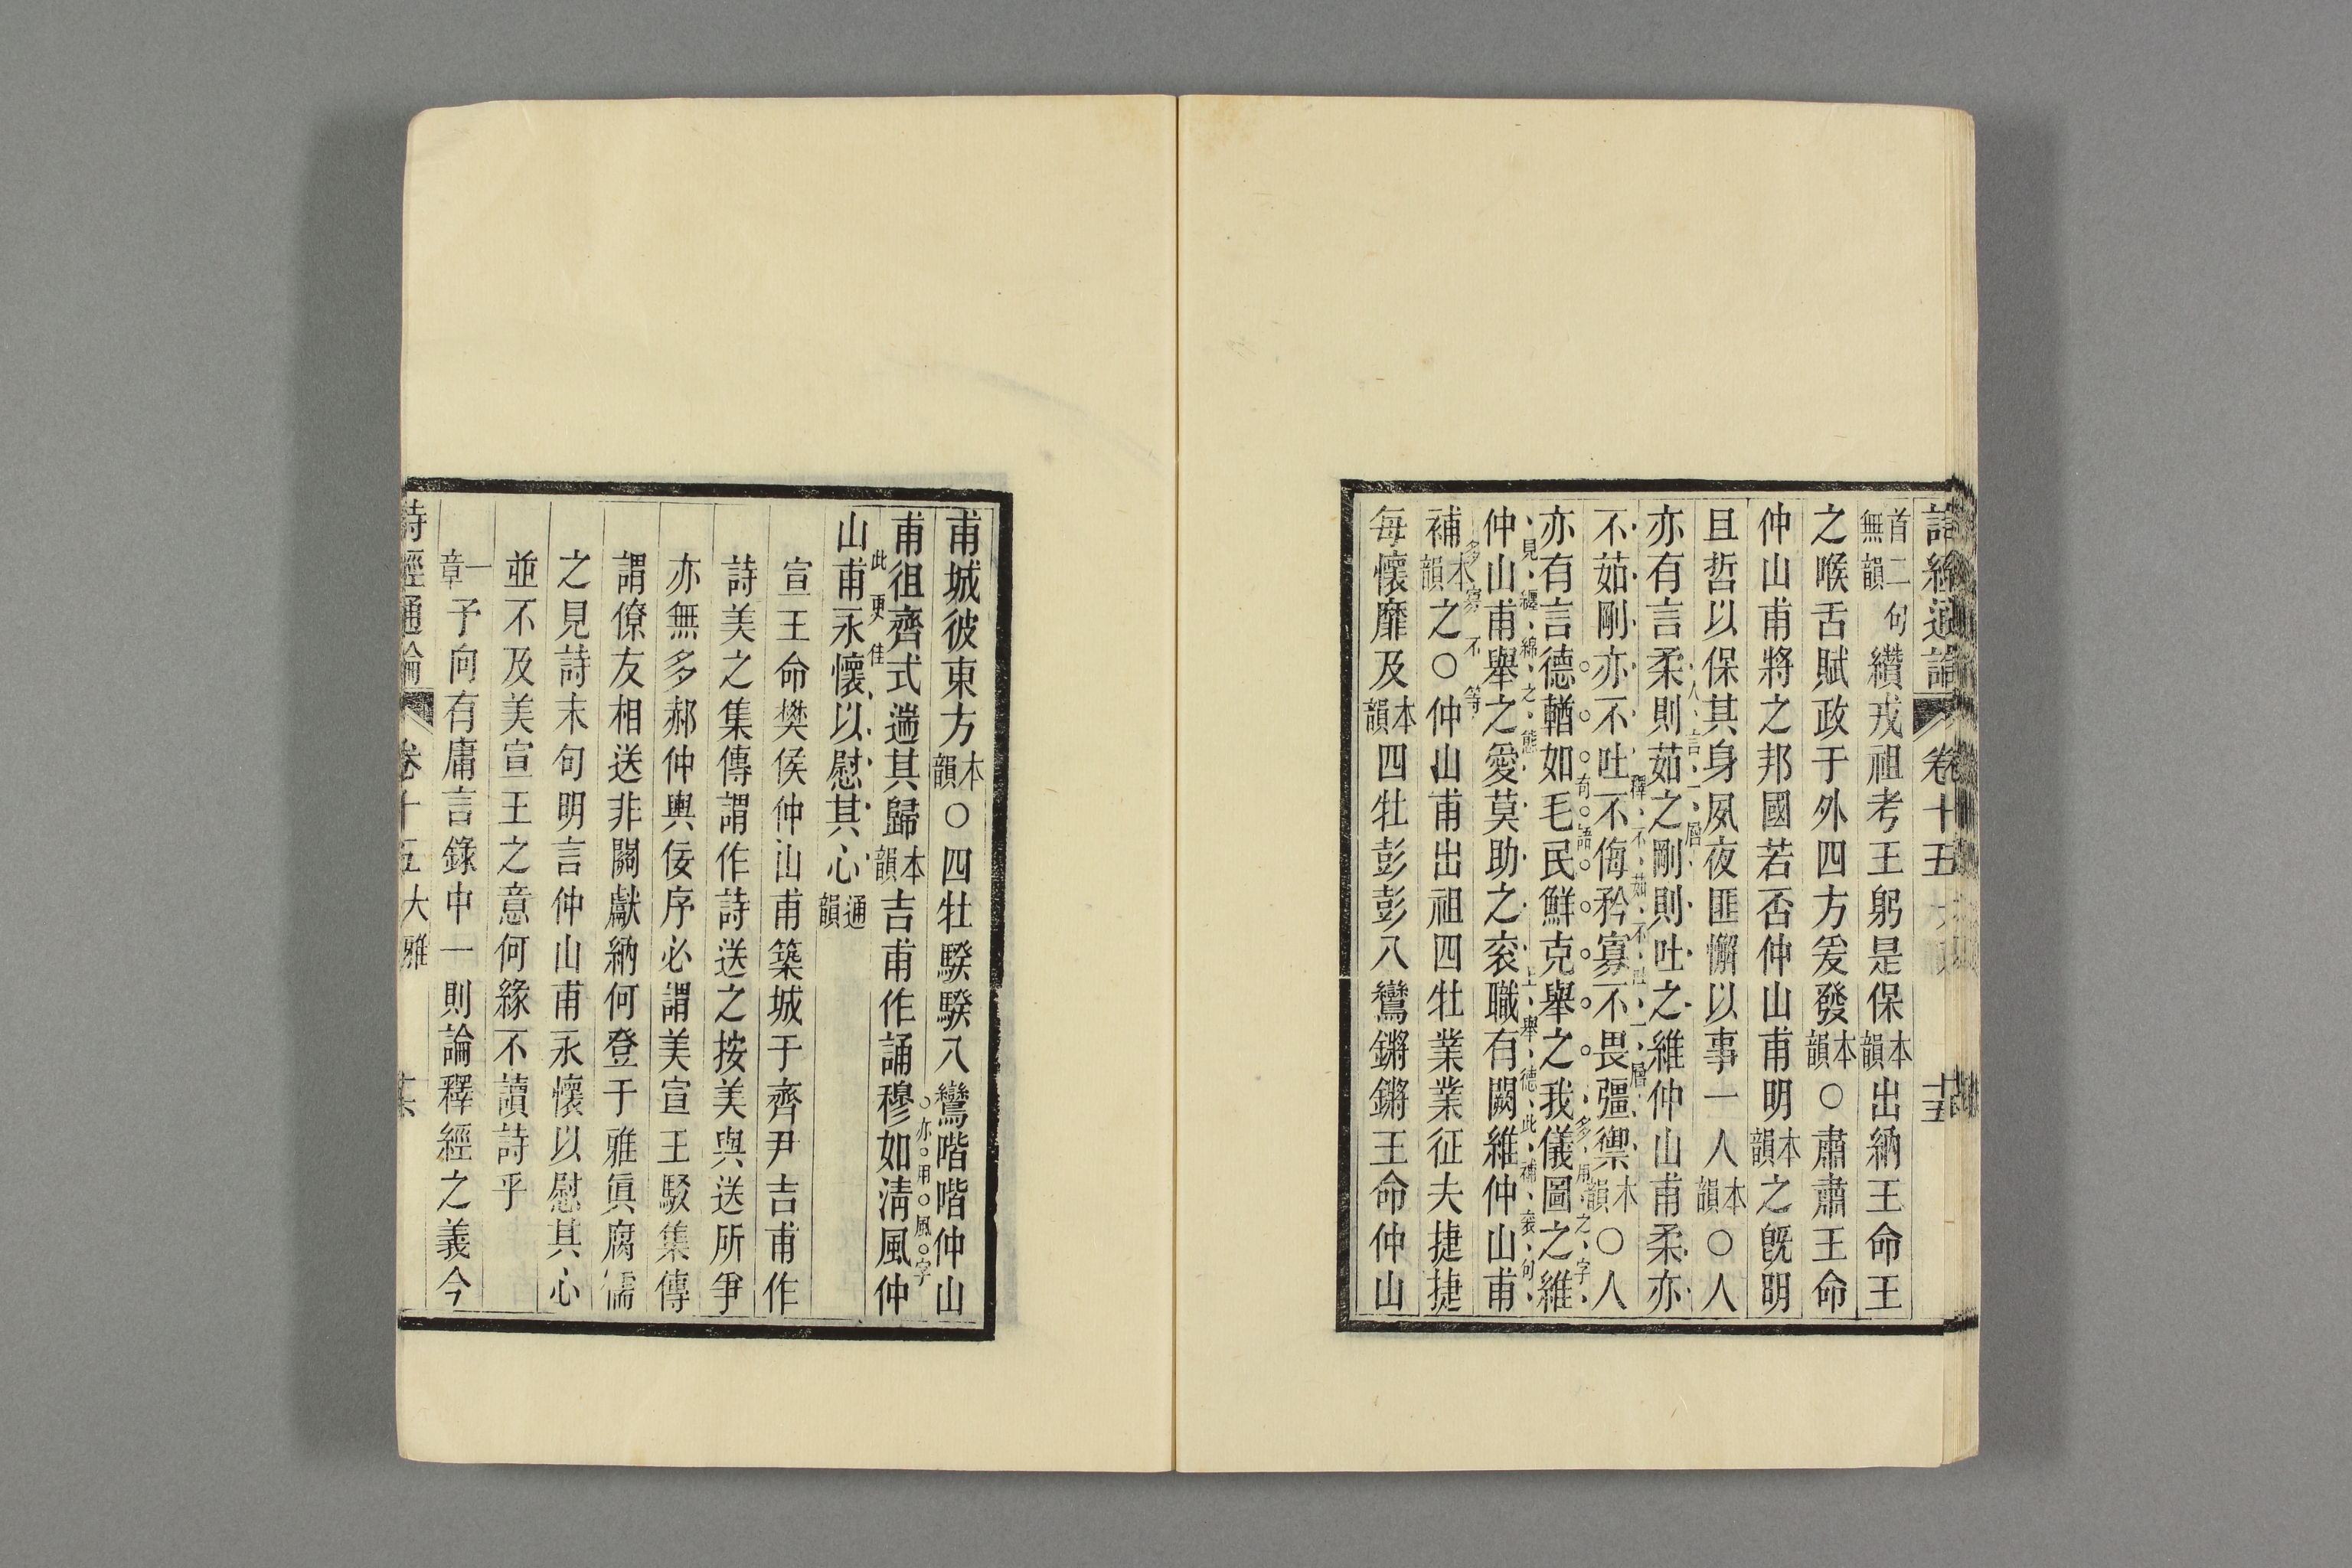 詩經通論 卷十五 大雅 十五
首二句無韻纘戎祖考王躬是保本韻出納王命王
之喉舌賦政于外四方爰發本韻○肅肅王命
仲山甫將之邦國若否仲山甫明本韻之旣明
且哲以保其身夙夜匪懈以事一人本韻○人
亦有言柔則茹之剛則吐之維仲山甫柔亦
人言一層
不茹剛亦不吐不侮矜寡不畏彊禦本韻○人
釋不茹不吐一層
亦有言德輶如毛民鮮克舉之我儀圖之維
有語多用之字
仲山甫舉之愛莫助之衮職有闕維仲山甫
見纏綿之態上舉德此補衮句
補本韻之○仲山甫出祖四牡業業征夫捷捷
多寡不等
每懷靡及本韻四牡彭彭八鸞鏘鏘王命仲山
甫城彼東方本韻○四牡騤騤八鸞喈喈仲山
甫徂齊式遄其歸本韻吉甫作誦穆如淸風仲
亦用風字
山甫永懷以慰其心通韻
此更佳
宣王命樊侯仲山甫築城于齊尹吉甫作
詩美之集傳謂作詩送之按美與送所爭
亦無多郝仲輿佞序必謂美宣王駁集傳
謂僚友相送非關獻納何登于雅眞腐儒
之見詩末句明言仲山甫永懷以慰其心
並不及美宣王之意何緣不讀詩乎
一章予向有庸言錄中一則論釋經之義今
詩經通論 卷十五 大雅